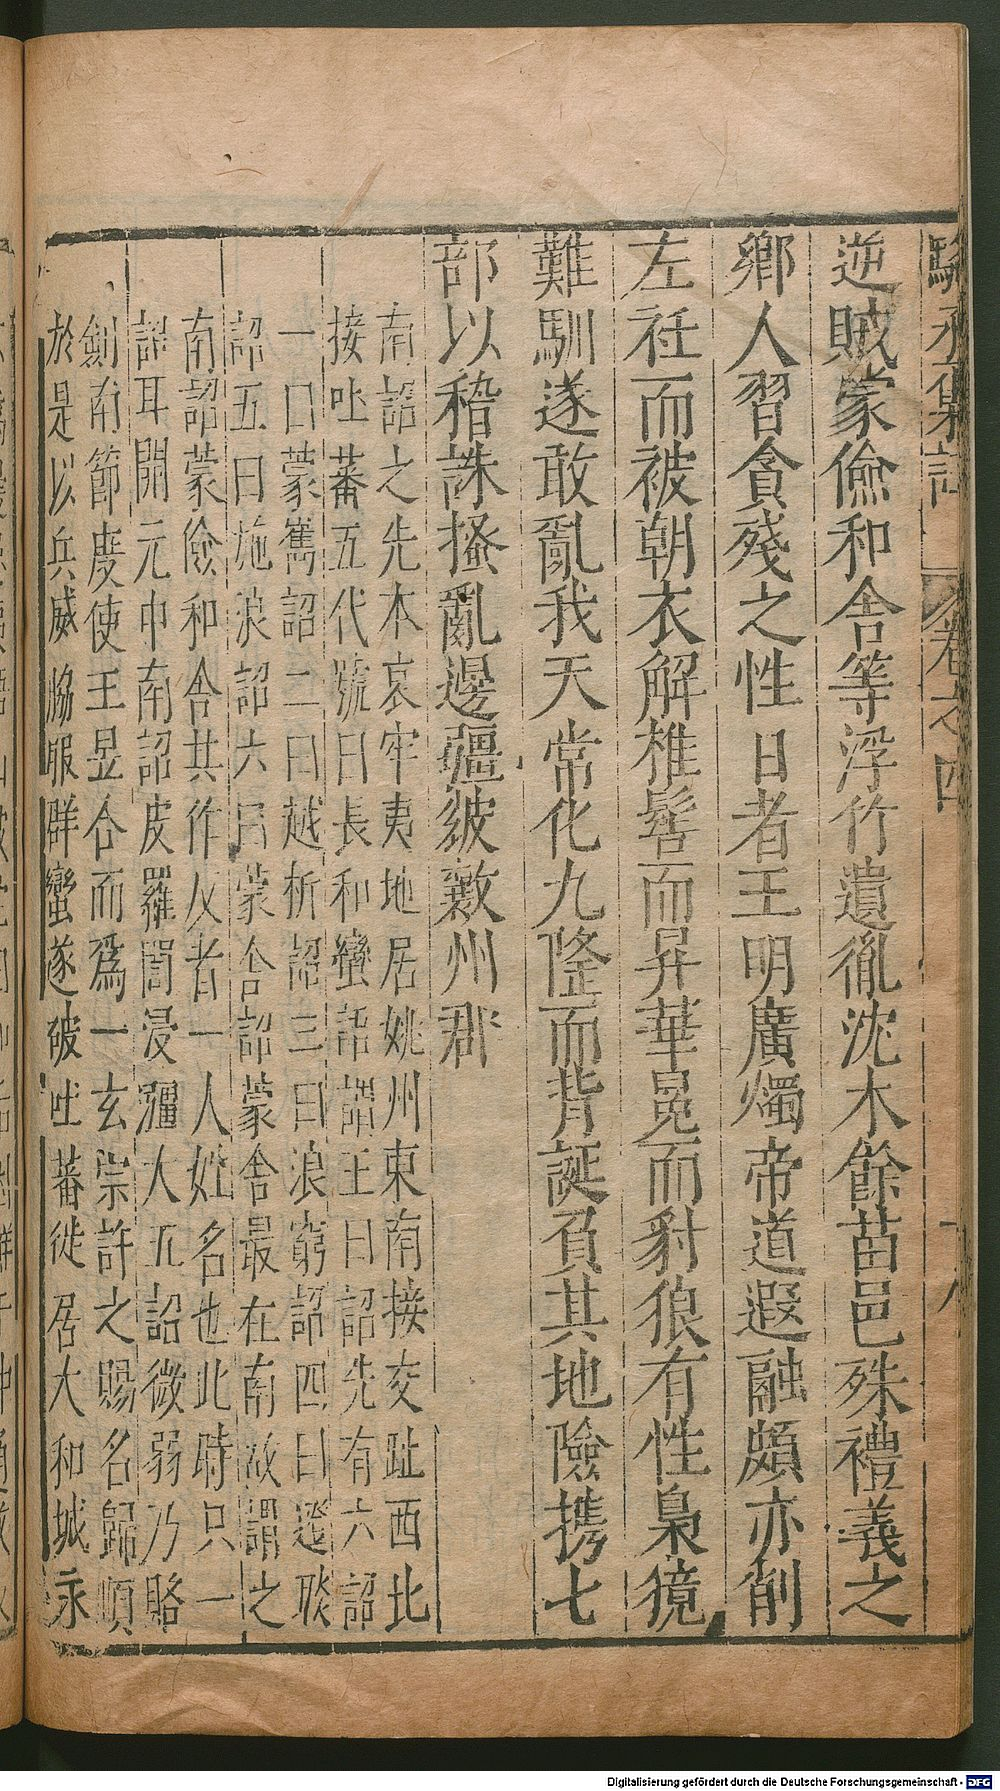 駱丞集註 卷之四 十八
逆賊蒙儉和舍等浮竹遺胤沈木餘苗邑殊禮義之
鄉人習貪殘之性日者王明廣燭帝道遐融頗亦削
左衽而被朝衣解椎髻而昇華冕而豺狼有性梟獍
難馴遂敢亂我天常化九隆而背誕負其地險携七
部以稽誅搔亂邊疆疲斁州郡
南詔之先本哀牢夷地居姚州東南接交趾西北
接吐蕃五代號曰長和蠻語謂王曰詔先有六詔
一曰蒙嶲詔二曰越析詔三曰浪窮詔四曰邆睒
詔五曰施浪詔六曰蒙舍詔蒙舍最在南故謂之
南詔蒙儉和舍共作反者一人姓名也此時只一
詔耳開元中南詔皮羅閣浸彊大五詔微弱乃賂
劍南節度使王昱合而爲一玄宗許之賜名歸順
於是以兵威脇服群蠻遂破吐蕃徙居大和城永
Digitalisierung gefördert durch die Deutsche Forschungsgemeinschaft - DFG